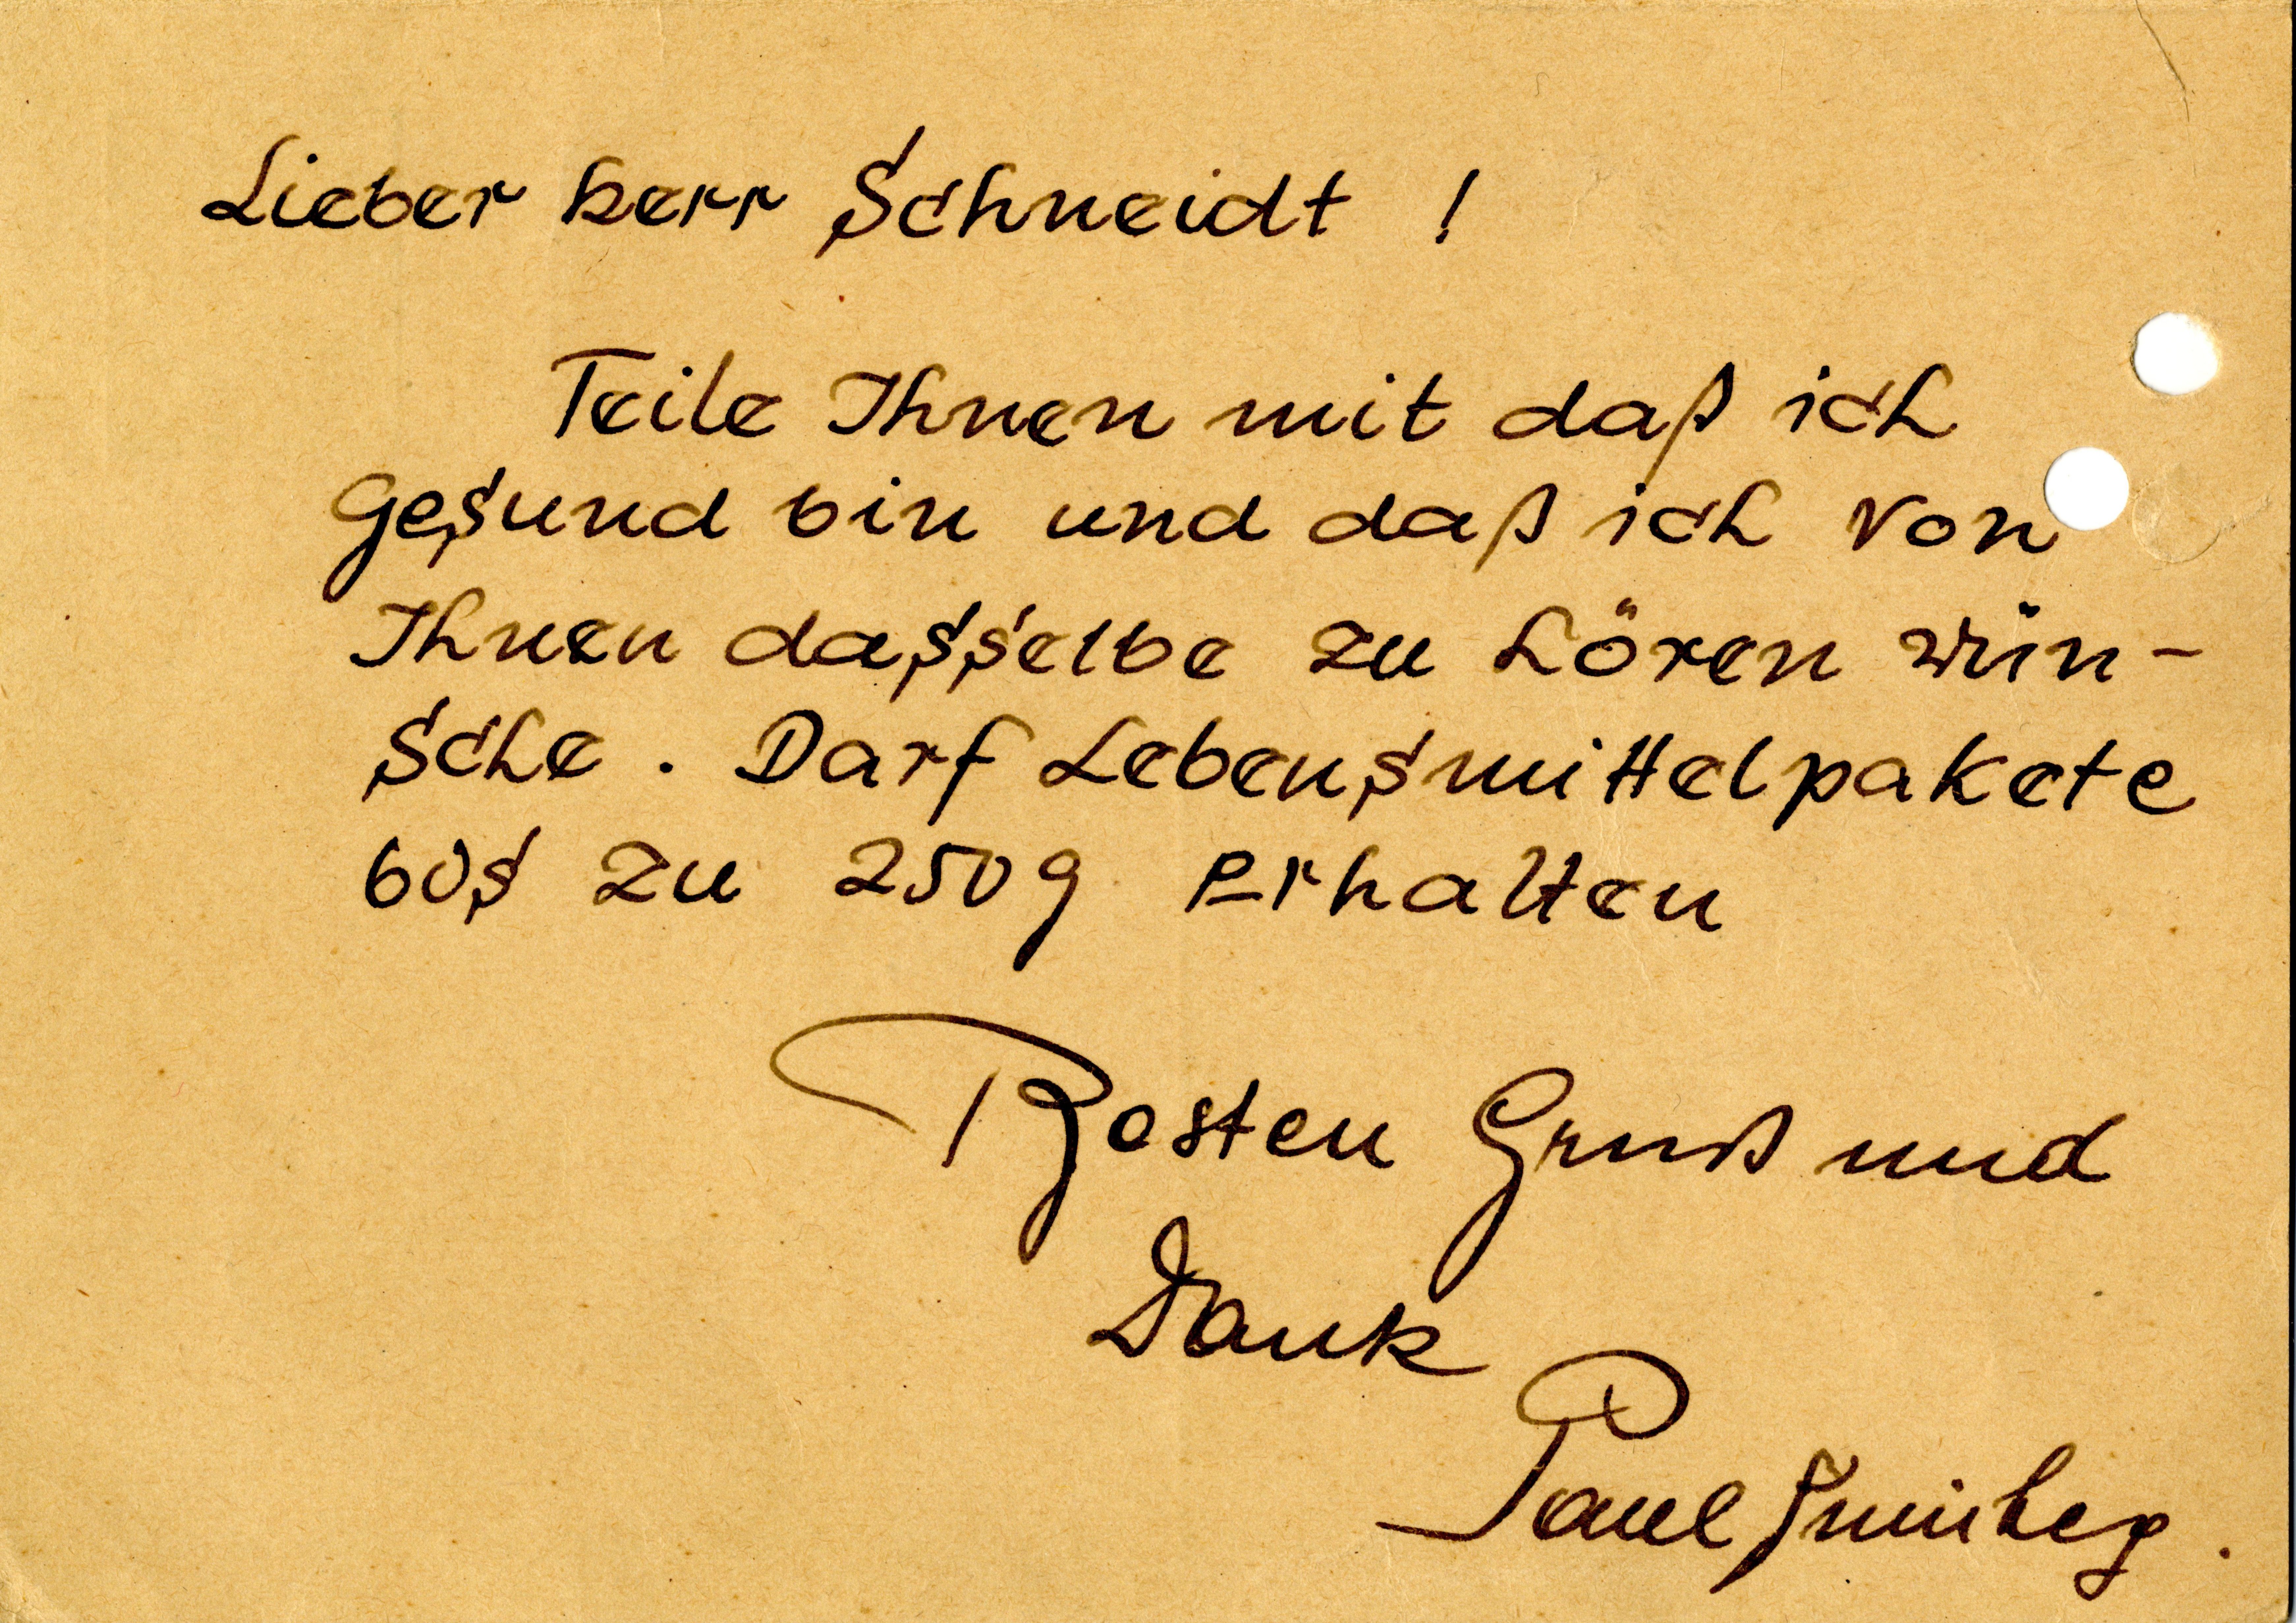 Lieber herr Schneidt !
Teile Ihnen mit daß ich
gesund bin und daß ich von
Ihnen dasselbe zu hören wün-
sche . Darf Lebensmittelpakete
bis zu 250g erhalten
Besten Gruß und
Dank
Paul